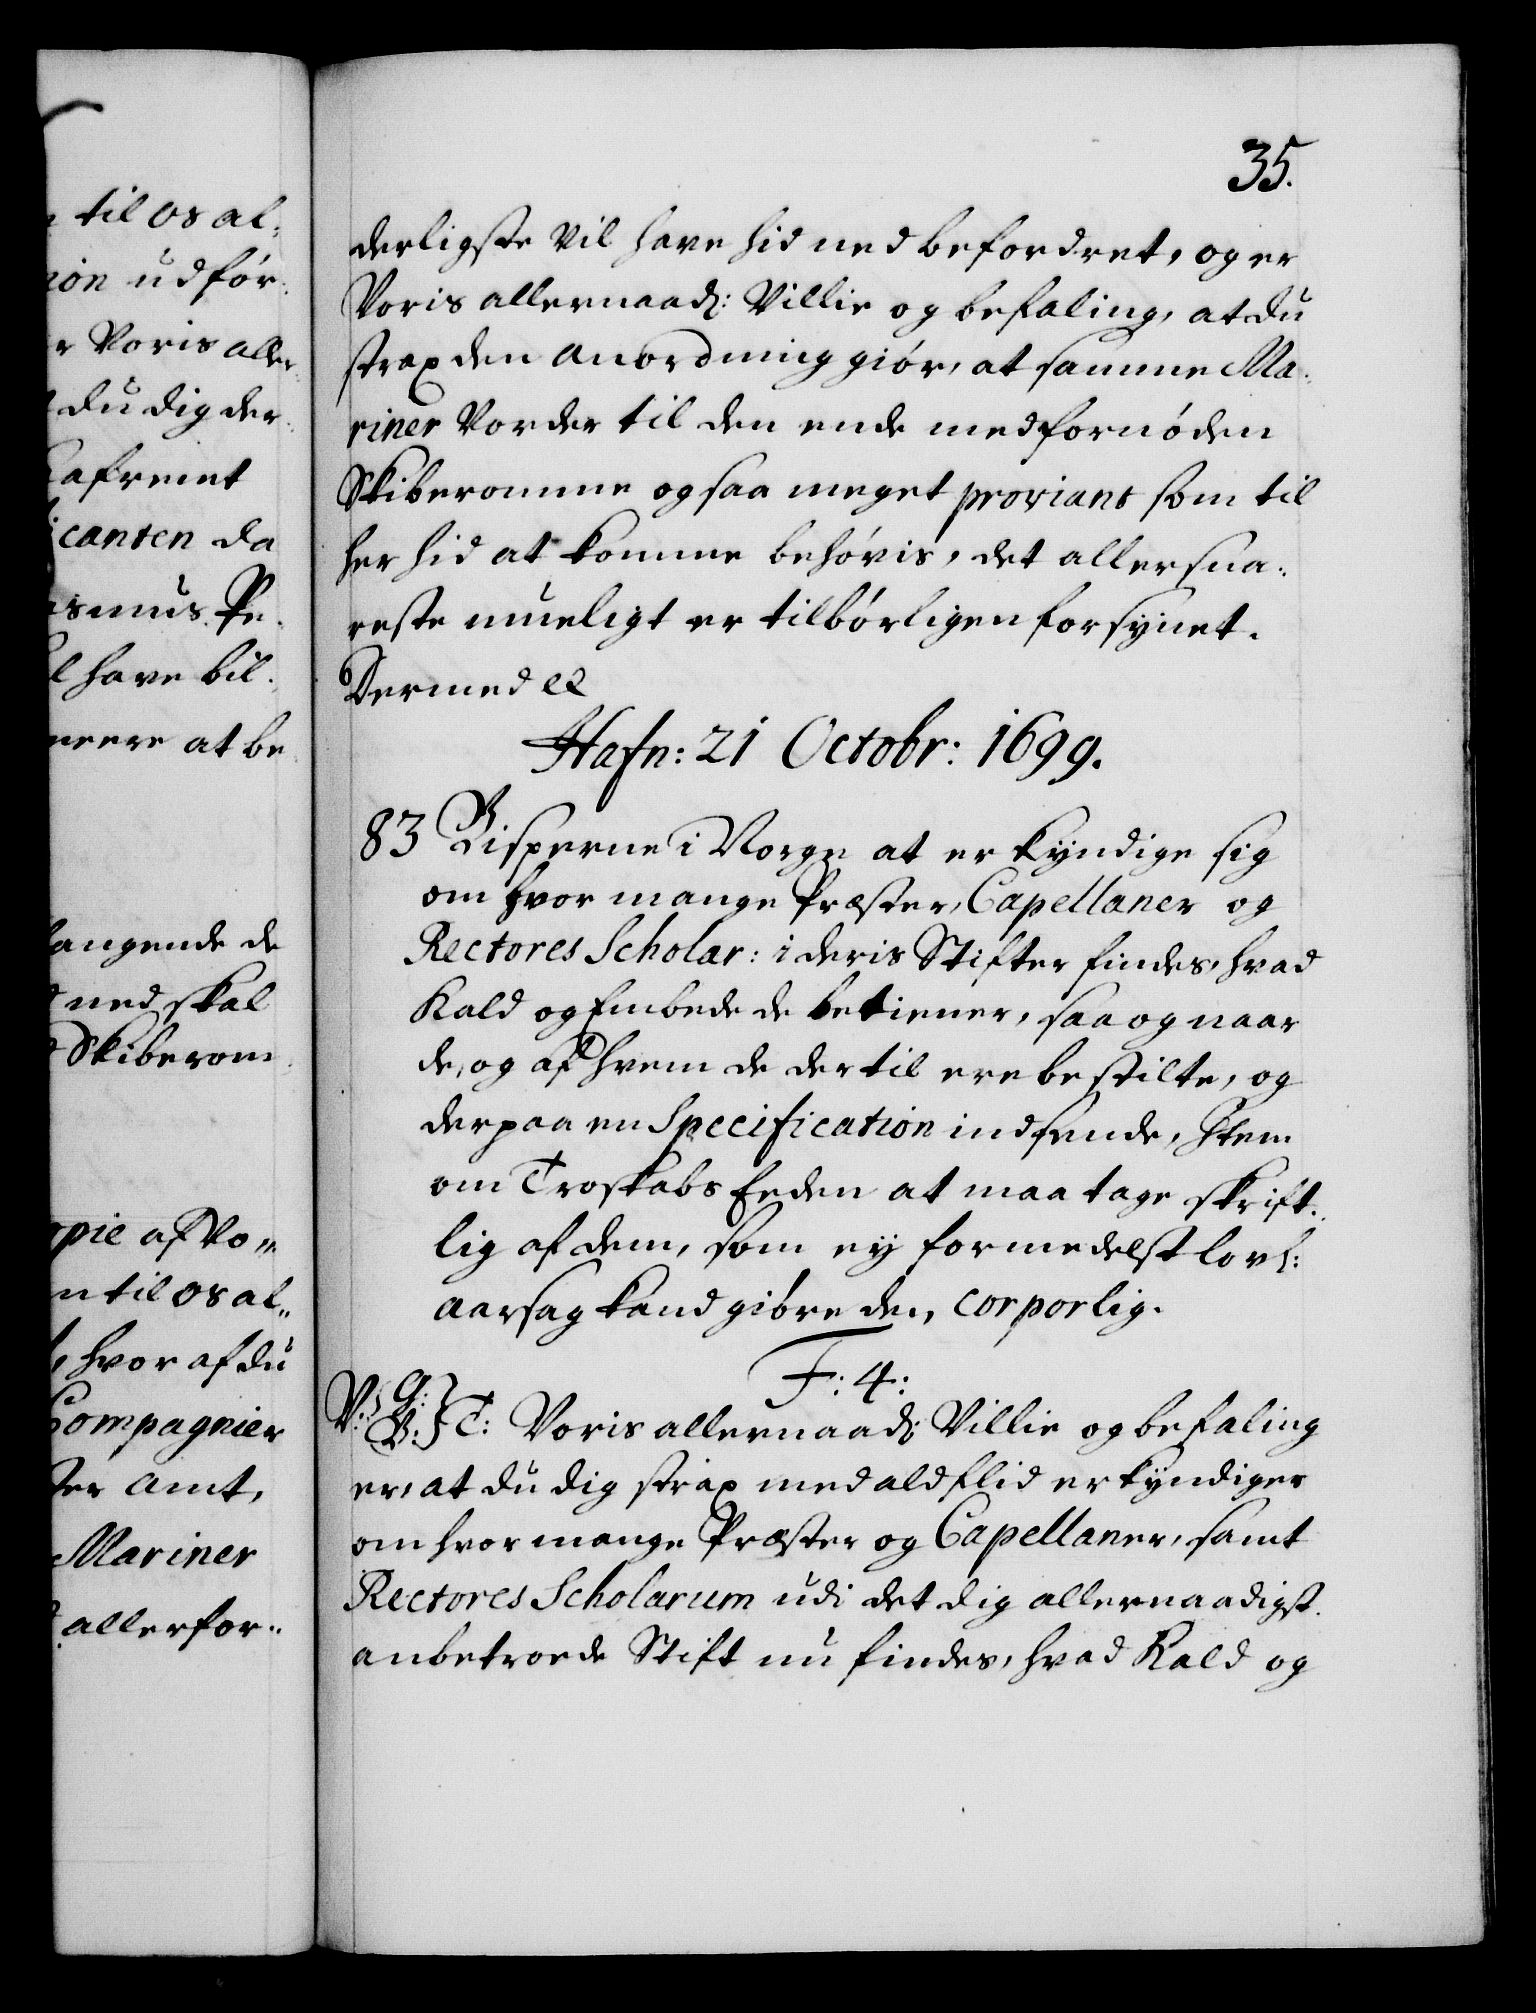 til os al,
ion udför,
r Voris aller,
du dig der,
afremt
canten da
smus Pe,
l have bil,
neere at be
langende de
ned skal
Skiberom
pie af Vo,,
n til os al,,
, hvor af du
Compagnier
ter Amt,
Mariner
allerfor,,
35.
derligste vil have hid ned befordret, og er
Voris allernaad: Villie og befaling, at du
strax den anordning giör, at samme Ma,
riner Vorder til den ende med fornöden
Skiberomme og saa meget proviant som til
her hid at komme behövis, det allersna,
reste mueligt er tilbörligen forsynet.
Dermed etc
Hafn: 21 Octobr: 1699.
83 Bisperne i Norge at erkyndige sig
om hvor mange Præster, Capellaner og
Rectores Scholar: i deris Stifter findes, hvad
Kald og Embede de betiener, saa og naar
de, og af hvem de der til ere bestilte, og
derpaa en Specification indsende, Item
om Troskabs Eeden at maa tage skrift,
lig af dem, som ey formedelst lovl:
aarsag kand giöre den, corporlig.
F: 4:
V: { G: B: } T: Voris allernaad: Villie og befaling
er, at du dig strax med ald flid erkyndiger
om hvor mange Præster og Capellaner, samt
Rectores Scholarum udi det dig allernaadigst
anbetroede Stift nu findes, hvad Kald og